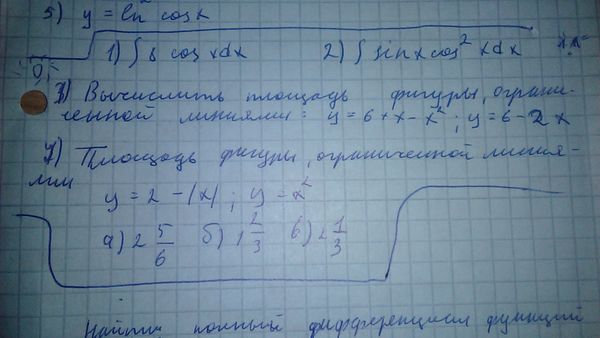 5) y = ln² cos x
1) ∫ 8 cos x dx 2) ∫ sin x cos² x dx
8) Вычислить площадь фигуры, ограни-
ченной линиями: y = 6 + x - x²; y = 6 - 2x
7) Площадь фигуры, ограниченной линия-
ми
y = 2 - |x|; y = x²
а) 2 5/6 б) 1 2/3 в) 2 1/3
Найти полный дифференциал функций